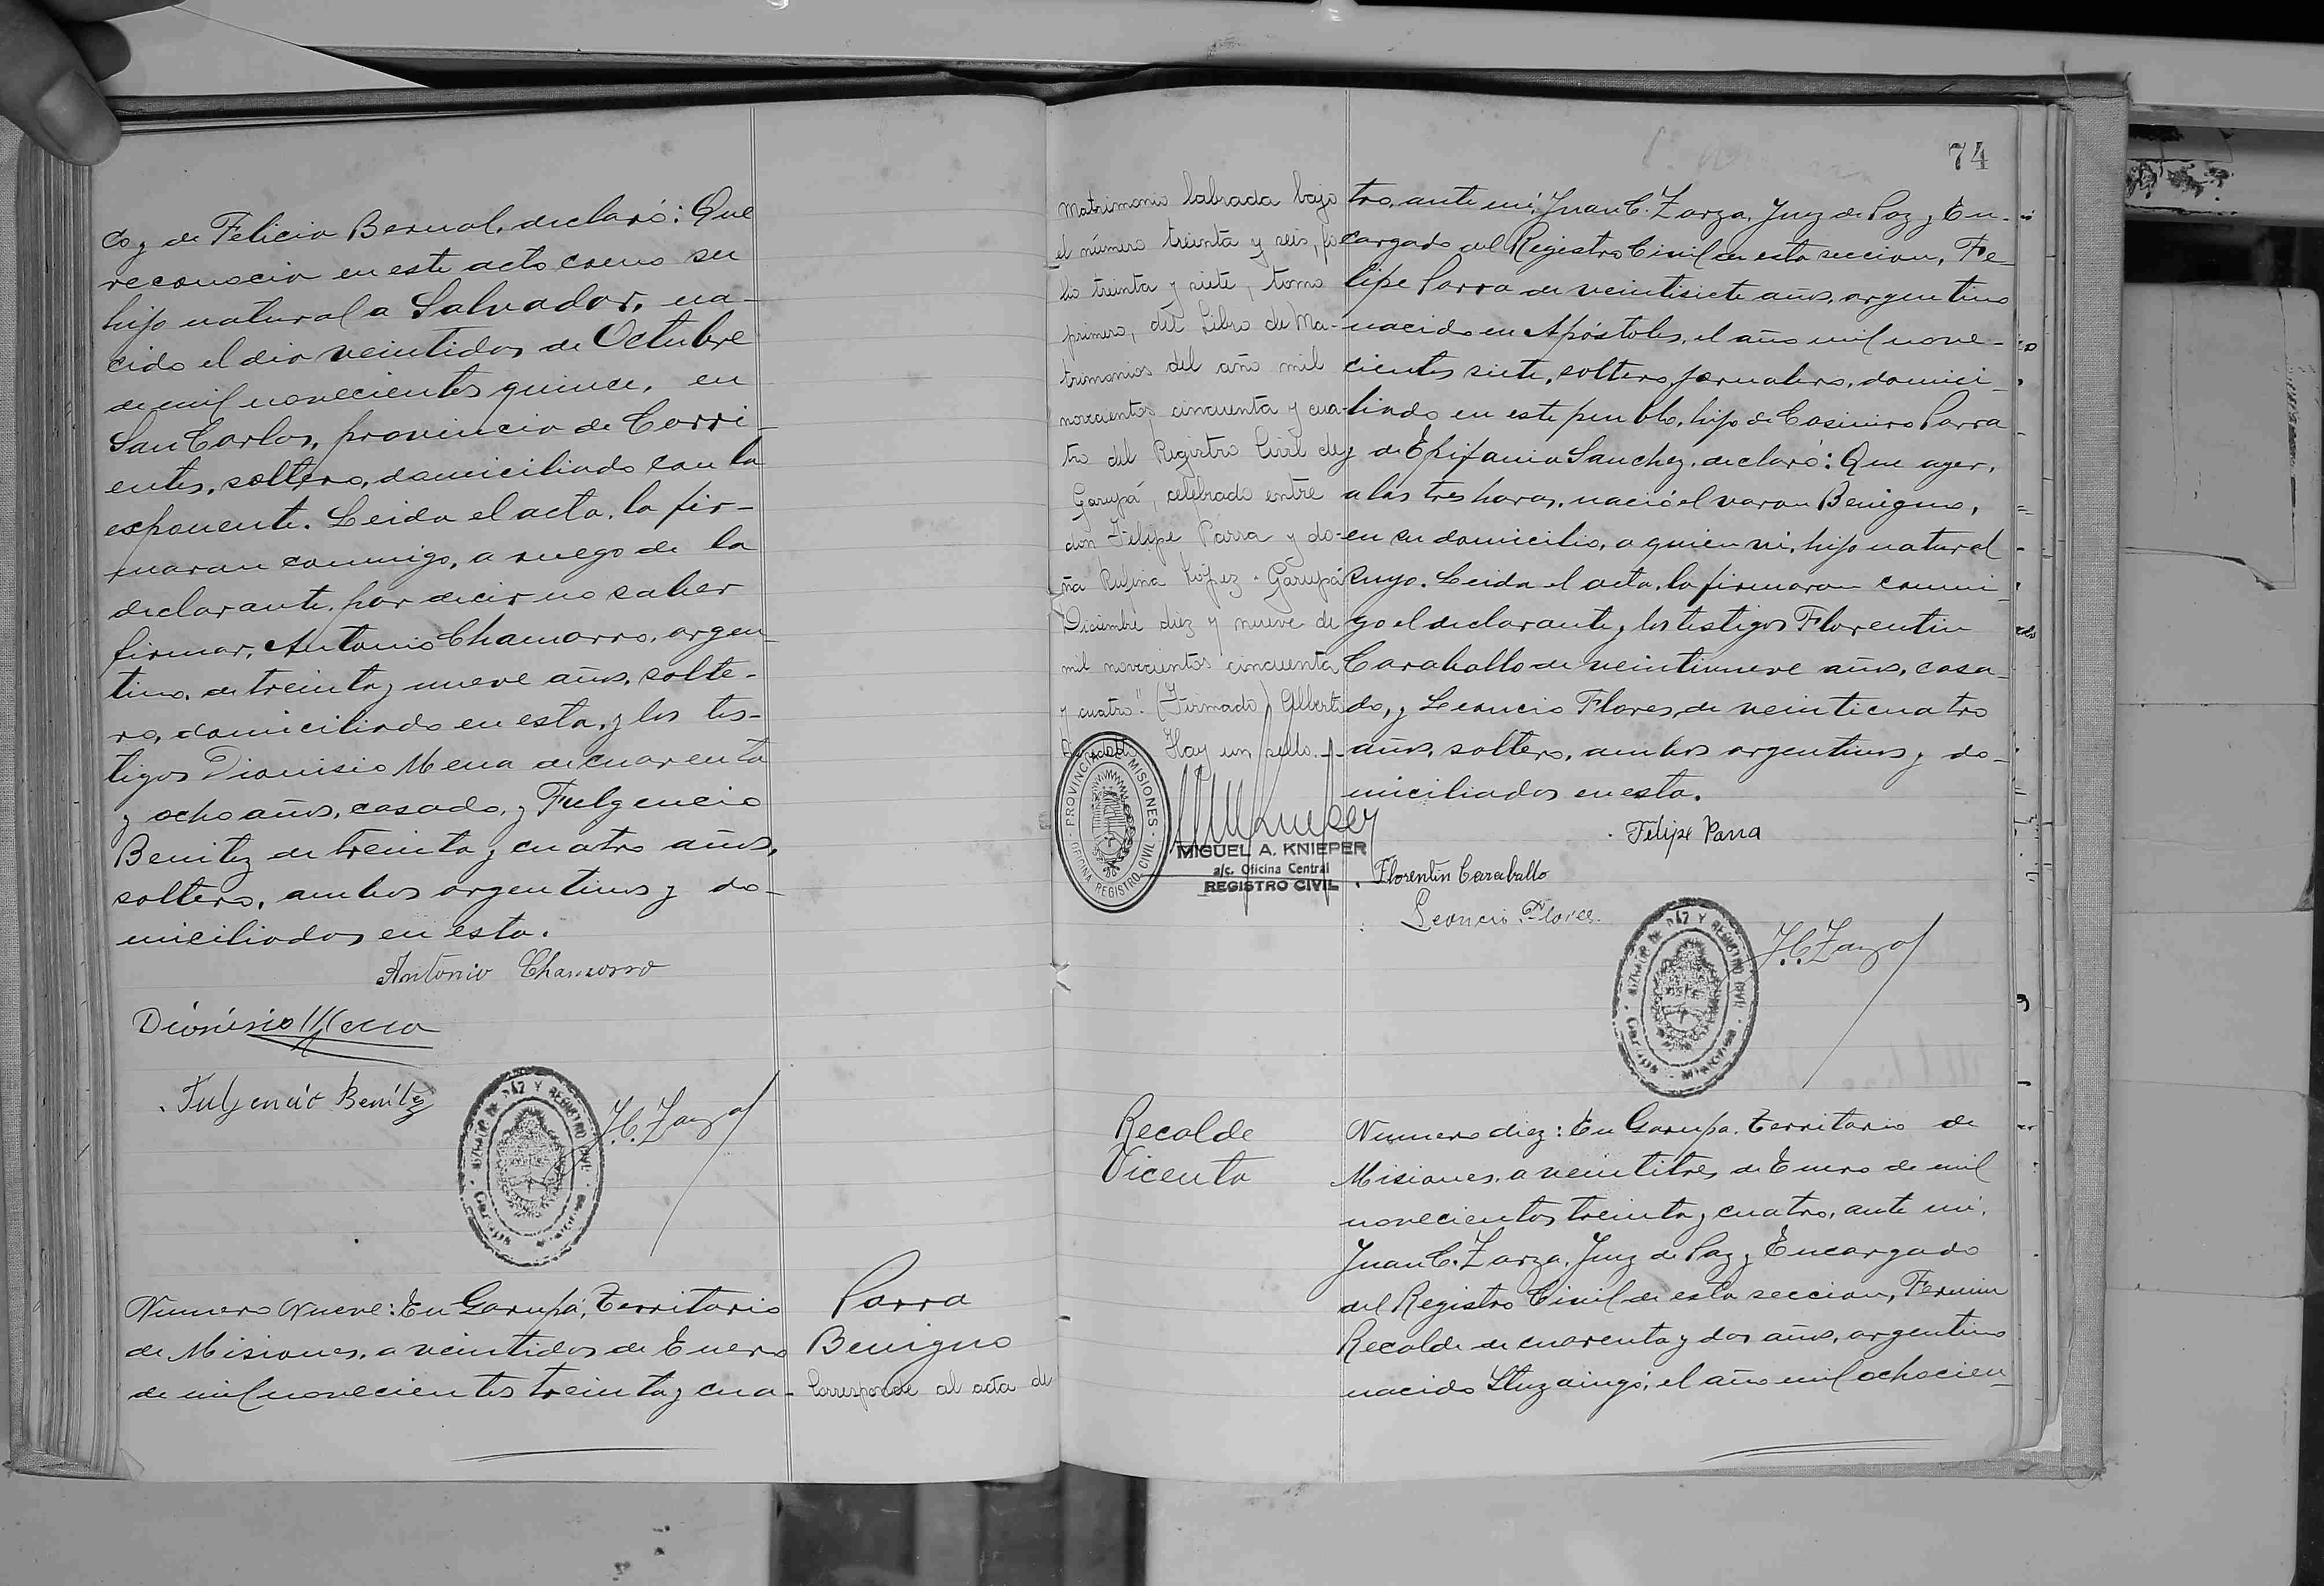 co y de Felicia Bernal, declaró: Que
reconocia en este acto como su
hijo natural a Salvador, na-
cido el dia veintidos de Octubre
de mil novecientos quince, en
San Carlos, provincia de Corri-
entes, soltero, domiciliado con la
exponente. Leida el acta, la fir-
maron conmigo, a ruego de la
declarante, por decir no saber
firmar, Antonio Chamorro, argen-
tino, de treinta y nueve años, solte-
ro, domiciliado en esta, y los tes-
tigos Dionisio Mena de cuarenta
y ocho años, casado, y Fulgencio
Benitez de treinta y cuatro años,
soltero, ambos argentinos y do-
miciliados en esta.
Antonio Chamorro
Dionisio Mena
Fulgencio Benítez
JUZGADO DE PAZ Y REGISTRO CIVIL
J.C. Zarza
Número Nueve: En Garupá, Territorio
de Misiones, a veintidos de Enero
de mil novecientos treinta y cua-
Parra
Benigno
Corresponde al acta de
74
Matrimonio labrada bajo
el número treinta y seis, fo
lio treinta y siete, tomo
primero, del Libro de Ma-
trimonios del año mil
novecientos cincuenta y cua-
tro del Registro Civil de
Garupá, celebrado entre
don Felipe Parra y do-
ña Rufina López. Garupá
Diciembre diez y nueve de
mil novecientos cincuenta
y cuatro." (Firmado) Alberto
Hay un sello.-
PROVINCIA DE MISIONES
OFICINA REGISTRO CIVIL
MIGUEL A. KNIEPER
a/c. Oficina Central
REGISTRO CIVIL
tro, ante mí, Juan C. Zarza, Juez de Paz y En-
cargado del Registro Civil de esta seccion, Fe-
lipe Parra de veintisiete años, argentino
nacido en Apóstoles, el año mil nove-
cientos siete, soltero, jornalero, domici-
liado en este pueblo, hijo de Casimiro Parra
y de Epifania Sanchez, declaró: Que ayer,
a las tres horas, nació el varon Benigno,
en su domicilio, a quien vi, hijo natural
suyo. Leida el acta, la firmaron conmi-
go el declarante y los testigos Florentin
Caraballo de veintinueve años, casa-
do, y Leoncio Flores, de veinticuatro
años, soltero, ambos argentinos y do-
miciliados en esta.
Felipe Parra
Florentin Caraballo
Leoncio Flores
JUZGADO DE PAZ Y REGISTRO CIVIL
MISIONES
J.C. Zarza
Recalde
Vicenta
Numero diez: En Garupa, Territorio de
Misiones, a veintitres de Enero de mil
novecientos treinta y cuatro, ante mi,
Juan C. Zarza, Juez de Paz y Encargado
del Registro Civil de esta seccion, Fermin
Recalde de cuarenta y dos años, argentino
nacido Ituzaingó, el año mil ochocien-